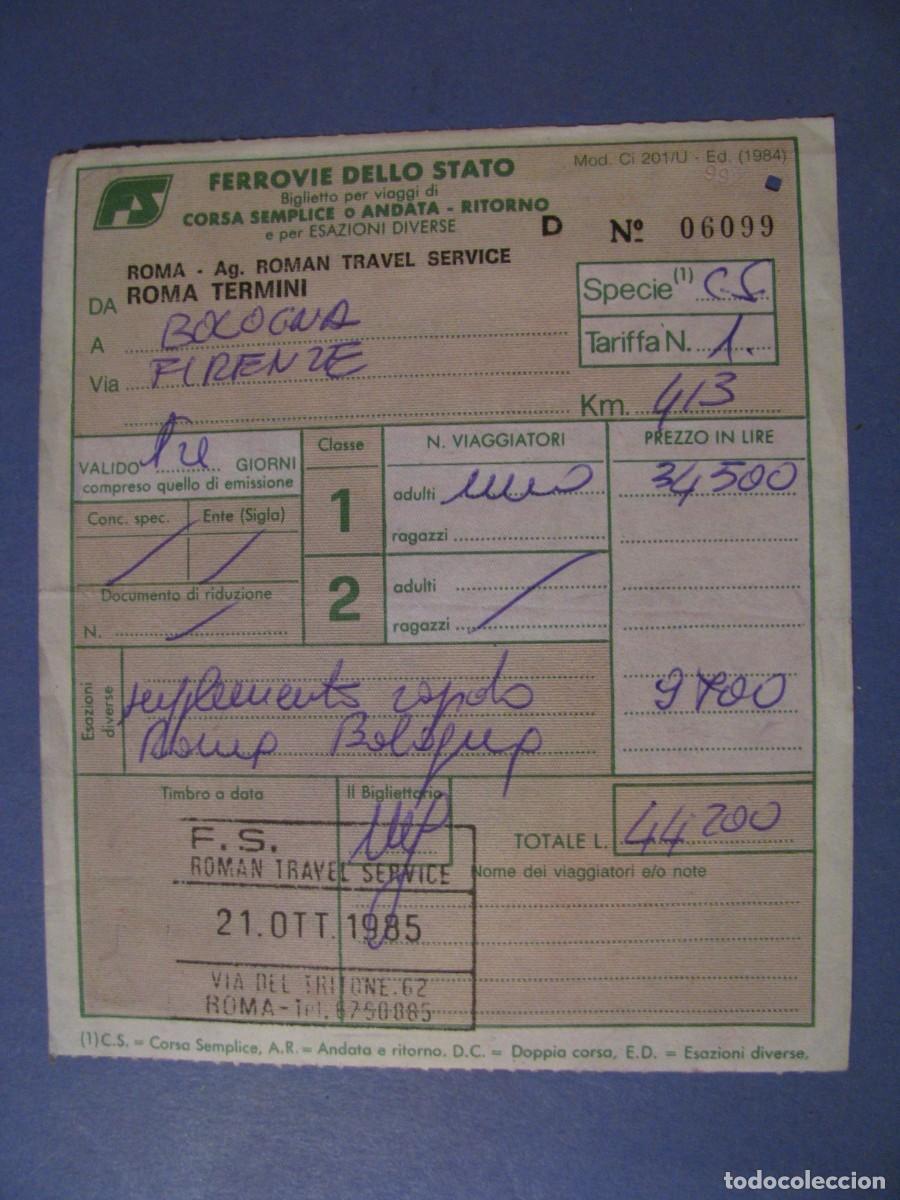 FS
FERROVIE DELLO STATO
Mod. Ci 201/U - Ed. (1984)
Biglietto per viaggi di
CORSA SEMPLICE O ANDATA - RITORNO
e per ESAZIONI DIVERSE
D Nº 06099
ROMA - Ag. ROMAN TRAVEL SERVICE
DA ROMA TERMINI
Specie (1) C.S.
A BOLOGNA
Tariffa N. 1.
Via FIRENZE
Km. 413
VALIDO Tre GIORNI
compreso quello di emissione
Classe
N. VIAGGIATORI
PREZZO IN LIRE
1
adulti uno
34500
ragazzi
Conc. spec. Ente (Sigla)
2
adulti
ragazzi
Documento di riduzione
N.
Esazioni diverse
supplemento rapido
9700
Roma Bologna
Timbro a data
Il Bigliettario
TOTALE L. 44200
Nome dei viaggiatori e/o note
F.S.
ROMAN TRAVEL SERVICE
21. OTT. 1985
VIA DEL TRITONE. 62
ROMA - Tel. 6790885
(1) C.S. = Corsa Semplice, A.R. = Andata e ritorno. D.C. = Doppia corsa, E.D. = Esazioni diverse.
todocoleccion